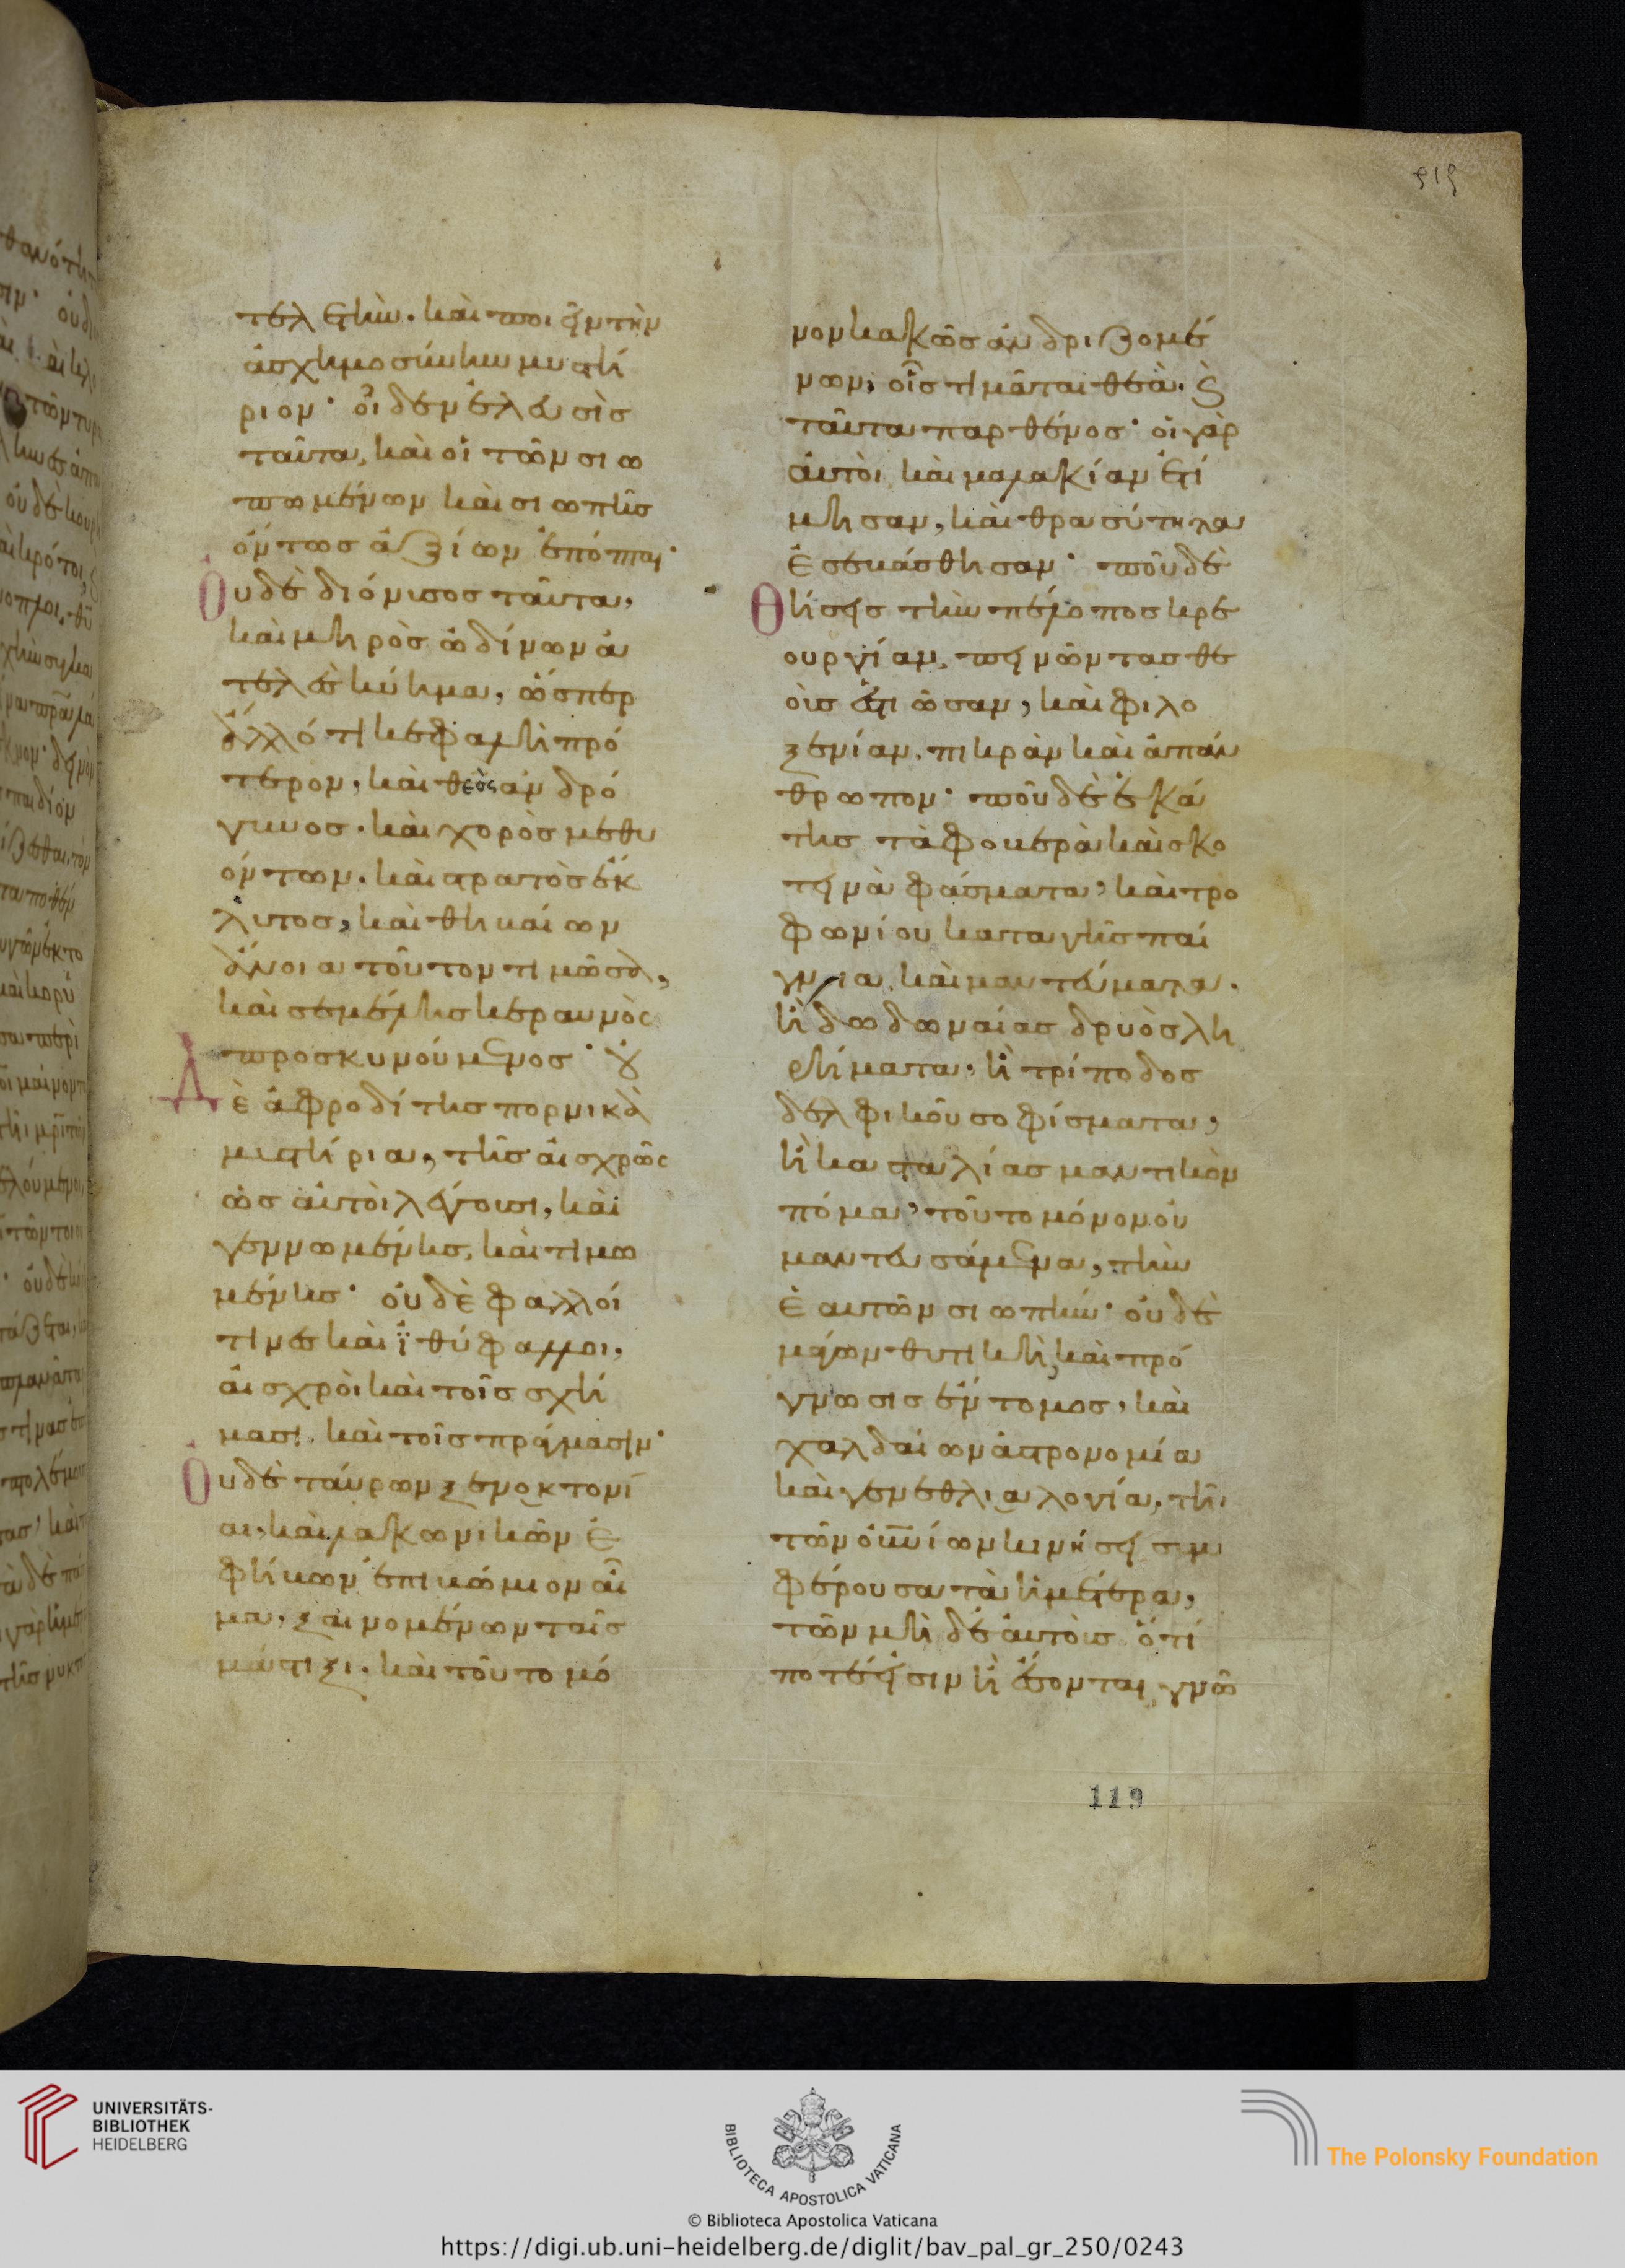 τελετὴν· καὶ ποιεῖν τὴν
ἀσχημοσύνην μυστή
ριον· οἶδεν ἐλευσὶς
ταῦτα, καὶ οἱ τῶν σιω
πωμένων καὶ σιωπῆς
ὄντως ἀξίων ἐπόπται·
Οὐδὲ διόνυσος ταῦτα,
καὶ μηρὸς ὠδίνων ἀ
τελὲς κύημα, ὥσπερ
ἄλλό τι κεφαλὴ πρό
τερον, καὶ θεὸς ἀνδρό
γυνος. καὶ χορὸς μεθυ
όντων. καὶ στρατὸς ἔκ
λυτος, καὶ θηβαίων
ἄνοια τοῦτον τιμῶσα,
καὶ σεμέλης κεραυνὸς
προσκυνούμενος· οὐ
Δὲ ἀφροδίτης πορνικὰ
μυστήρια, τῆς αἰσχρῶς
ὡς αὐτοὶ λέγουσι, καὶ
γεννωμένης, καὶ τιμω
μένης· οὐδὲ φαλλοί
τινες καὶ ἰθύφαλλοι,
αἰσχροὶ καὶ τοῖς σχή
μασι. καὶ τοῖς πράγμασιν·
Οὐδὲ ταύρων ξενοκτονί
αι, καὶ λακωνικῶν ἐ
φήβων ἐπιβώμιον αἷ
μα, ξαινομένων ταῖς
μάστιξι. καὶ τοῦτο μό
νον κακῶς ἀνδριζομέ
νων, οἷς τιμᾶται θεὰ. ϗ
ταῦτα παρθένος· οἱ γὰρ
αὐτοὶ καὶ μαλακίαν ἐτί
μησαν, καὶ θρασύτητα
ἐσεβάσθησαν· ποῦ δὲ
Θήσεις τὴν πέλοπος κρε
ουργίαν, πεινῶντας θε
οὺς ἑστιῶσαν, καὶ φιλο
ξενίαν. πικρὰν καὶ ἀπάν
θρωπον· ποῦ δὲ ἑκά
της τὰ φοβερὰ καὶ σκο
τεινὰ φάσματα, καὶ τρο
φωνίου κατα γῆς παί
γνια, καὶ μαντεύματα.
ἢ δωδωναίας δρυὸς λη
ρήματα, ἢ τρίποδος
δελφικοῦ σοφίσματα,
ἢ κασταλίας μαντικὸν
πόμα, τοῦτο μόνον οὐ
μαντευσάμενα, τὴν
ἑαυτῶν σιωπήν· οὐδὲ
μάγων θυτικὴ, καὶ πρό
γνωσις ἔντομος, καὶ
χαλδαίων ἀστρονομία
καὶ γενεθλιαλογία, τῆι
τῶν οὐνίων κινήσει συμ
φέρουσα τὰ ἡμέτερα,
τῶν μὴ δὲ αὐτοὺς ὅτί
ποτέ εἰσιν ἢ ἔσονται γνῶ
119
UNIVERSITÄTS-
BIBLIOTHEK
HEIDELBERG
BIBLIOTECA APOSTOLICA VATICANA
© Biblioteca Apostolica Vaticana
The Polonsky Foundation
https://digi.ub.uni-heidelberg.de/diglit/bav_pal_gr_250/0243